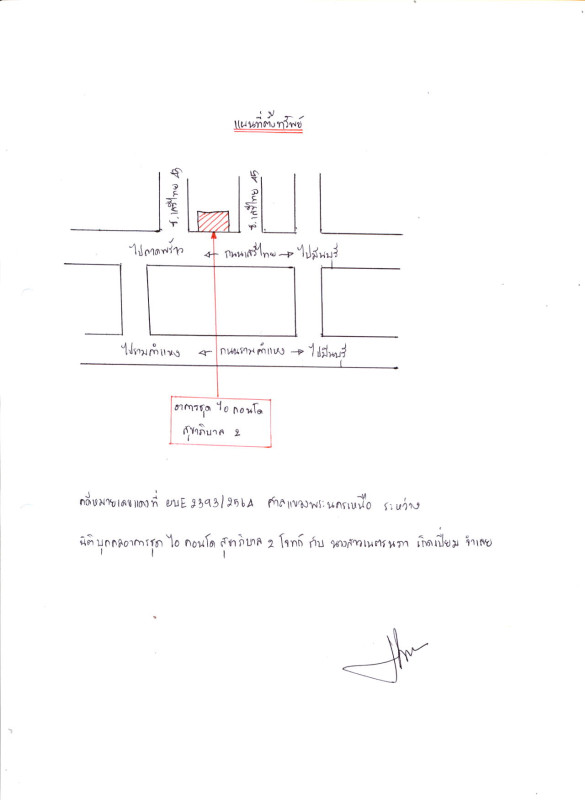 แผนที่ตั้งทรัพย์
ซ.เสรีไทย
ซ.เสรีไทย
ไปลาดพร้าว ← ถนนเสรีไทย → ไปมีนบุรี
ไปรามคำแหง ← ถนนรามคำแหง → ไปมีนบุรี
อาคารชุด ไอ คอนโด
สุขาภิบาล 2
คดีหมายเลขแดงที่ ผบE 2393/2564 ศาลแขวงพระนครเหนือ ระหว่าง
นิติบุคคลอาคารชุด ไอ คอนโด สุขาภิบาล 2 โจทก์ กับ นางสาวเนตรนภา เกิดเปี่ยม จำเลย